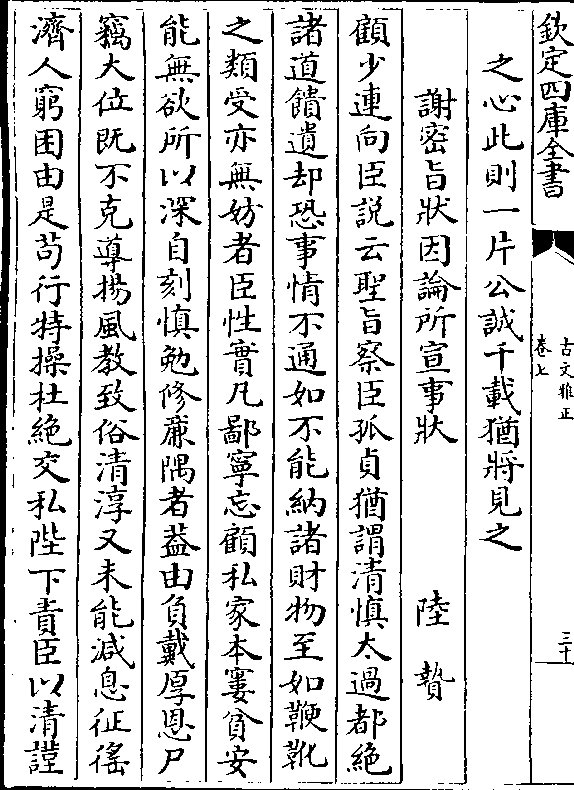 欽定四庫全書
古文雅正
卷七
三十
之心此則一片公誠千載猶將見之
謝密旨狀因論所宣事狀 陸贄
顧少連向臣説云聖旨察臣孤貞猶謂清慎太過都絶
諸道饋遺却恐事情不通如不能納諸財物至如鞭靴
之類受亦無妨者臣性實凡鄙寧忘顧私家本窶貧安
能無欲所以深自刻慎勉修亷隅者葢由負戴厚恩尸
竊大位既不克導揚風教致俗清淳又未能減息征徭
濟人窮困由是茍行特操杜絶交私陛下責臣以清謹